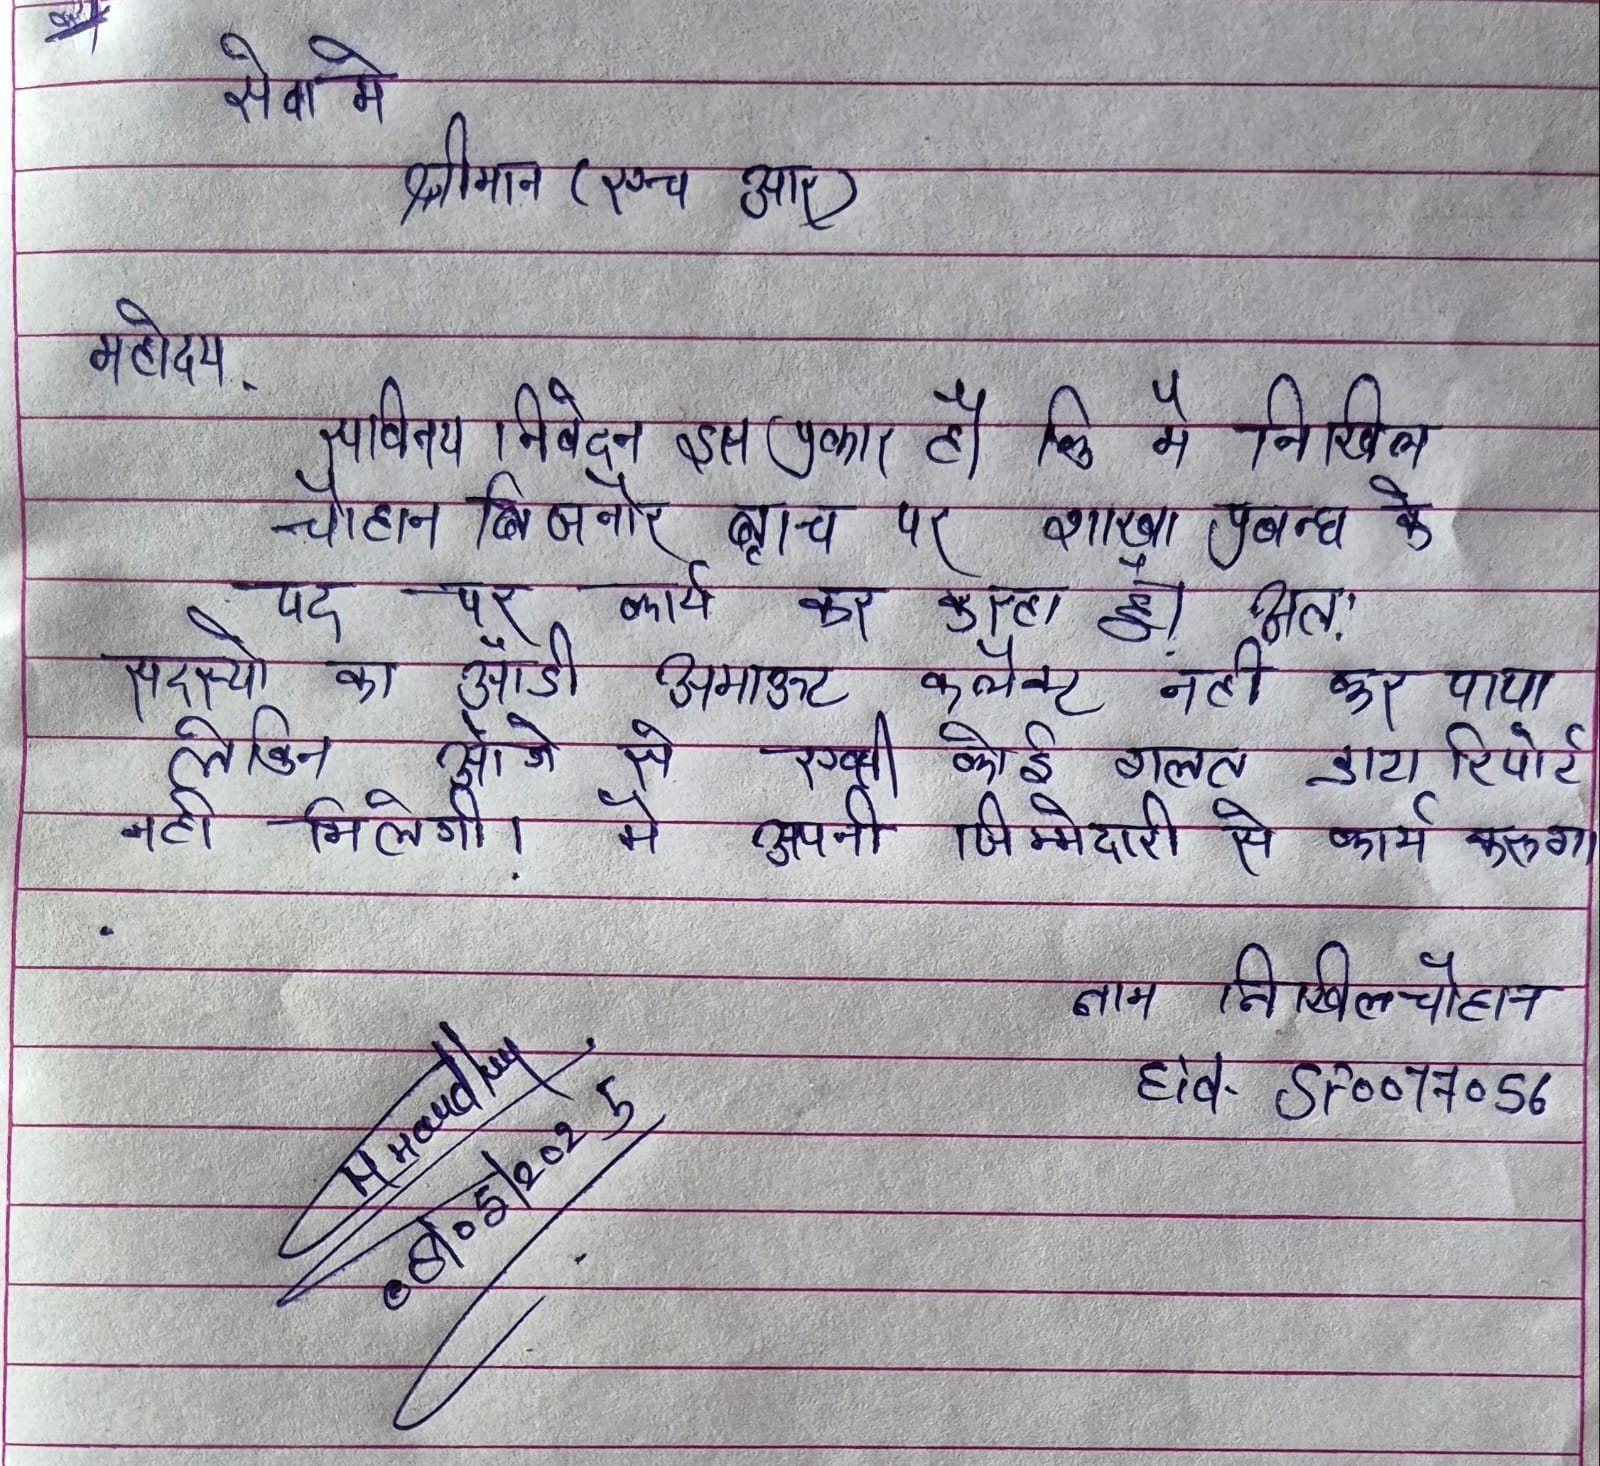 सेवा मे
श्रीमान (एच आर)
महोदय.
सविनय निवेदन इस प्रकार है कि मै निखिल
चौहान बिजनौर ब्रांच पर शाखा प्रबन्ध के
पद पर कार्य कर करता हूँ। अत:
सदस्यो का ओडी अमाऊन्ट कलैक्ट नही कर पाया
लेकिन आगे से कोई गलत डाटा रिपोर्ट
नही मिलेगी। मै अपनी जिम्मेदारी से कार्य करूगा
नाम निखिल चौहान
Eid- SF0077056
05/2025